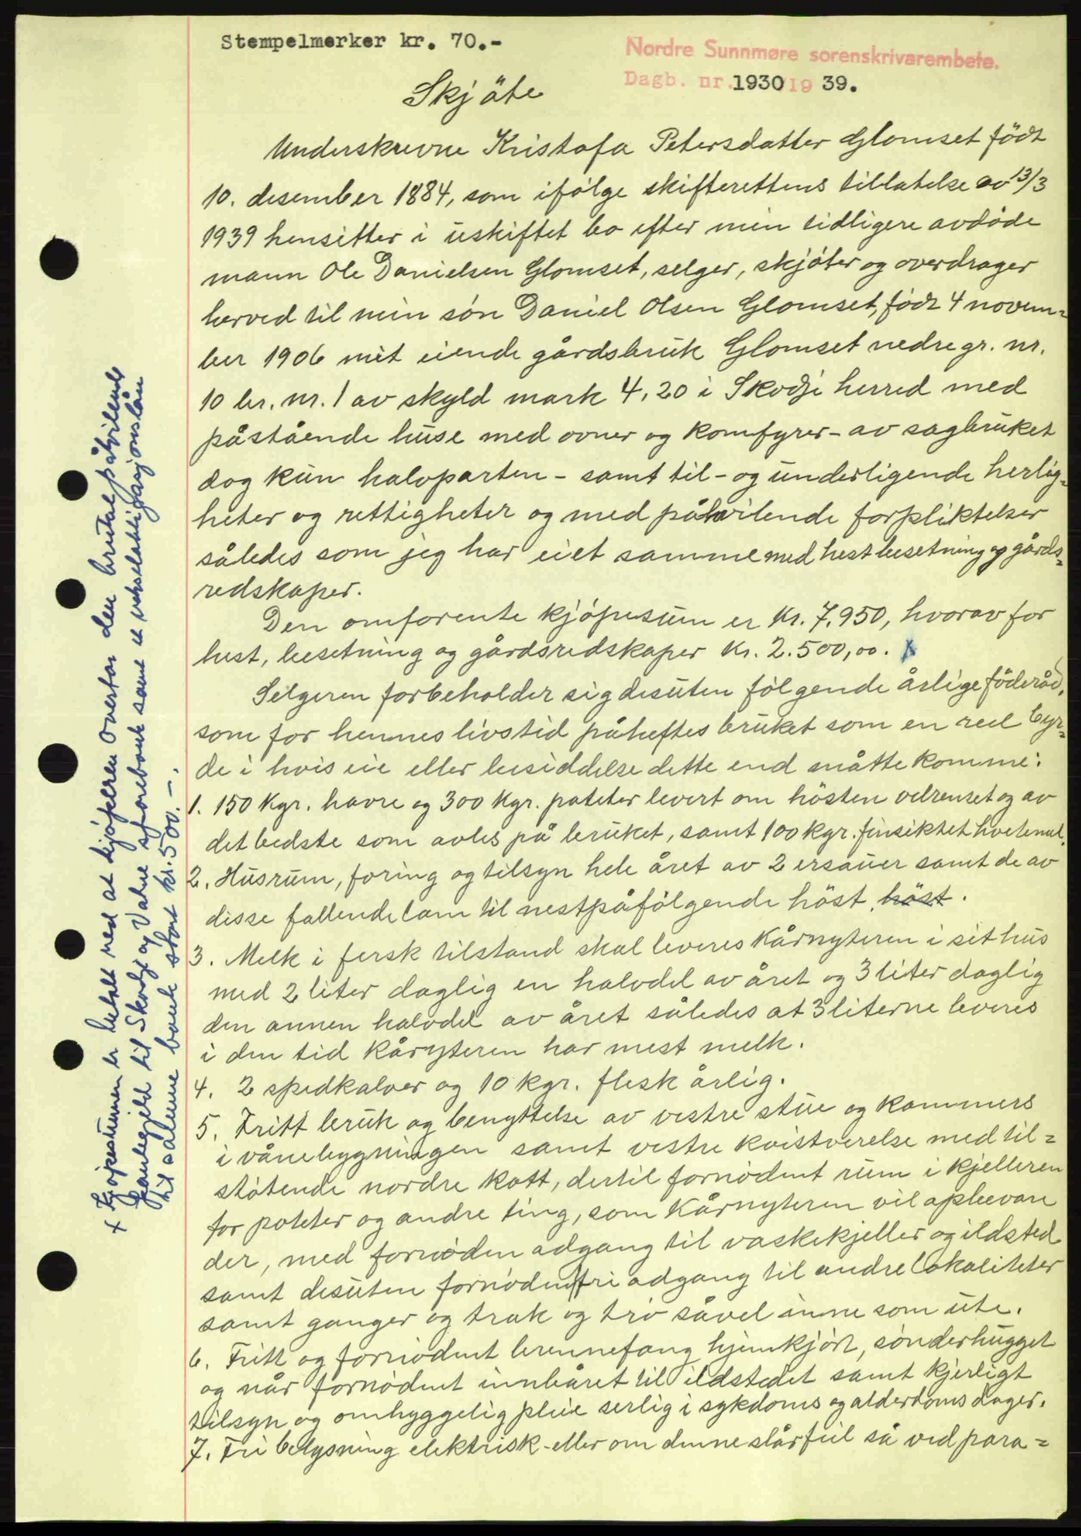 Stempelmerker kr. 70.-
Nordre Sunnmøre sorenskrivarembete.
Dagb. nr. 1930 19 39.
Skjöte
Underskrevne Kristofa Petersdatter Glomset födt
10. desember 1884, som ifölge skifterettens tillatelse av 13/3
1939 hensitter i uskiftet bo efter min tidligere avdöde
mann Ole Danielsen Glomset, selger, skjöter og overdrager
herved til min sön Daniel Olsen Glomset, födt 4 novem=
ber 1906 mit eiende gårdsbruk Glomset nedre gr. nr.
10 br. nr. 1 av skyld mark 4,20 i Skodje herred med
påstående huse med ovner og komfyrer - av sagbruket
dog kun halvparten - samt til- og underliggende herlig=
heter og rettigheter og med påhvilende forpliktelser
således som jeg har eiet samme med hest besetning og gårds=
redskaper.
Den omforente kjöpesum er Kr. 7,950, hvorav for
hest, besetning og gårdsredskaper Kr. 2.500,00. x
Selgeren forbeholder sig desuten fölgende årlige föderåd,
som for hennes livstid påheftes bruket som en reel byr=
de i hvis eie eller besiddelse dette end måtte komme:
1. 150 Kgr. havre og 300 Kgr. poteter levert om hösten velrenset og av
det bedste som avles på bruket, samt 100 kgr. finsiktet hvetemel.
2. Husrum, foring og tilsyn hele året av 2 ersauer samt de av
disse fallende lam til nestpåfölgende höst, höst.
3. Melk i fersk tilstand skal leveres Kårnyteren i sit hus
med 2 liter daglig en halvdel av året og 3 liter daglig
den annen halvdel av året således at 3 literne leveres
i den tid kåryteren har mest melk.
4. 2 spedkalver og 10 kgr. flesk årlig.
5. Fritt bruk og benyttelse av vestre stue og kammers
i vånebygningen samt vestre kvistverelse med til=
stötende nordre kott, dertil fornödent rum i kjelleren
for poteter og andre ting, som Kårnyteren vil opbevare
der, med fornöden adgang til vaskekjeller og ildsted
samt desuten fornöden fri adgang til andre lokaliteter
samt ganger og trak og trö såvel inne som ute.
6. Fritt og fornödent brennefang hjemkjört, sönderhugget
og når fornödent innbåret til ildstedet samt kjerligt
tilsyn og omhyggelig pleie serlig i sykdoms og alderdoms dager.
7. Fri belysning elektrisk - eller om denne slår feil så ved para=
x Kjöpesummen er betalt ved at kjöperen overtar den brutal påhvilende
panlegjeld til Skodje og Vatne sparebank samt et vekselobligasjonslån
til samme bank stort kr. 500.-.